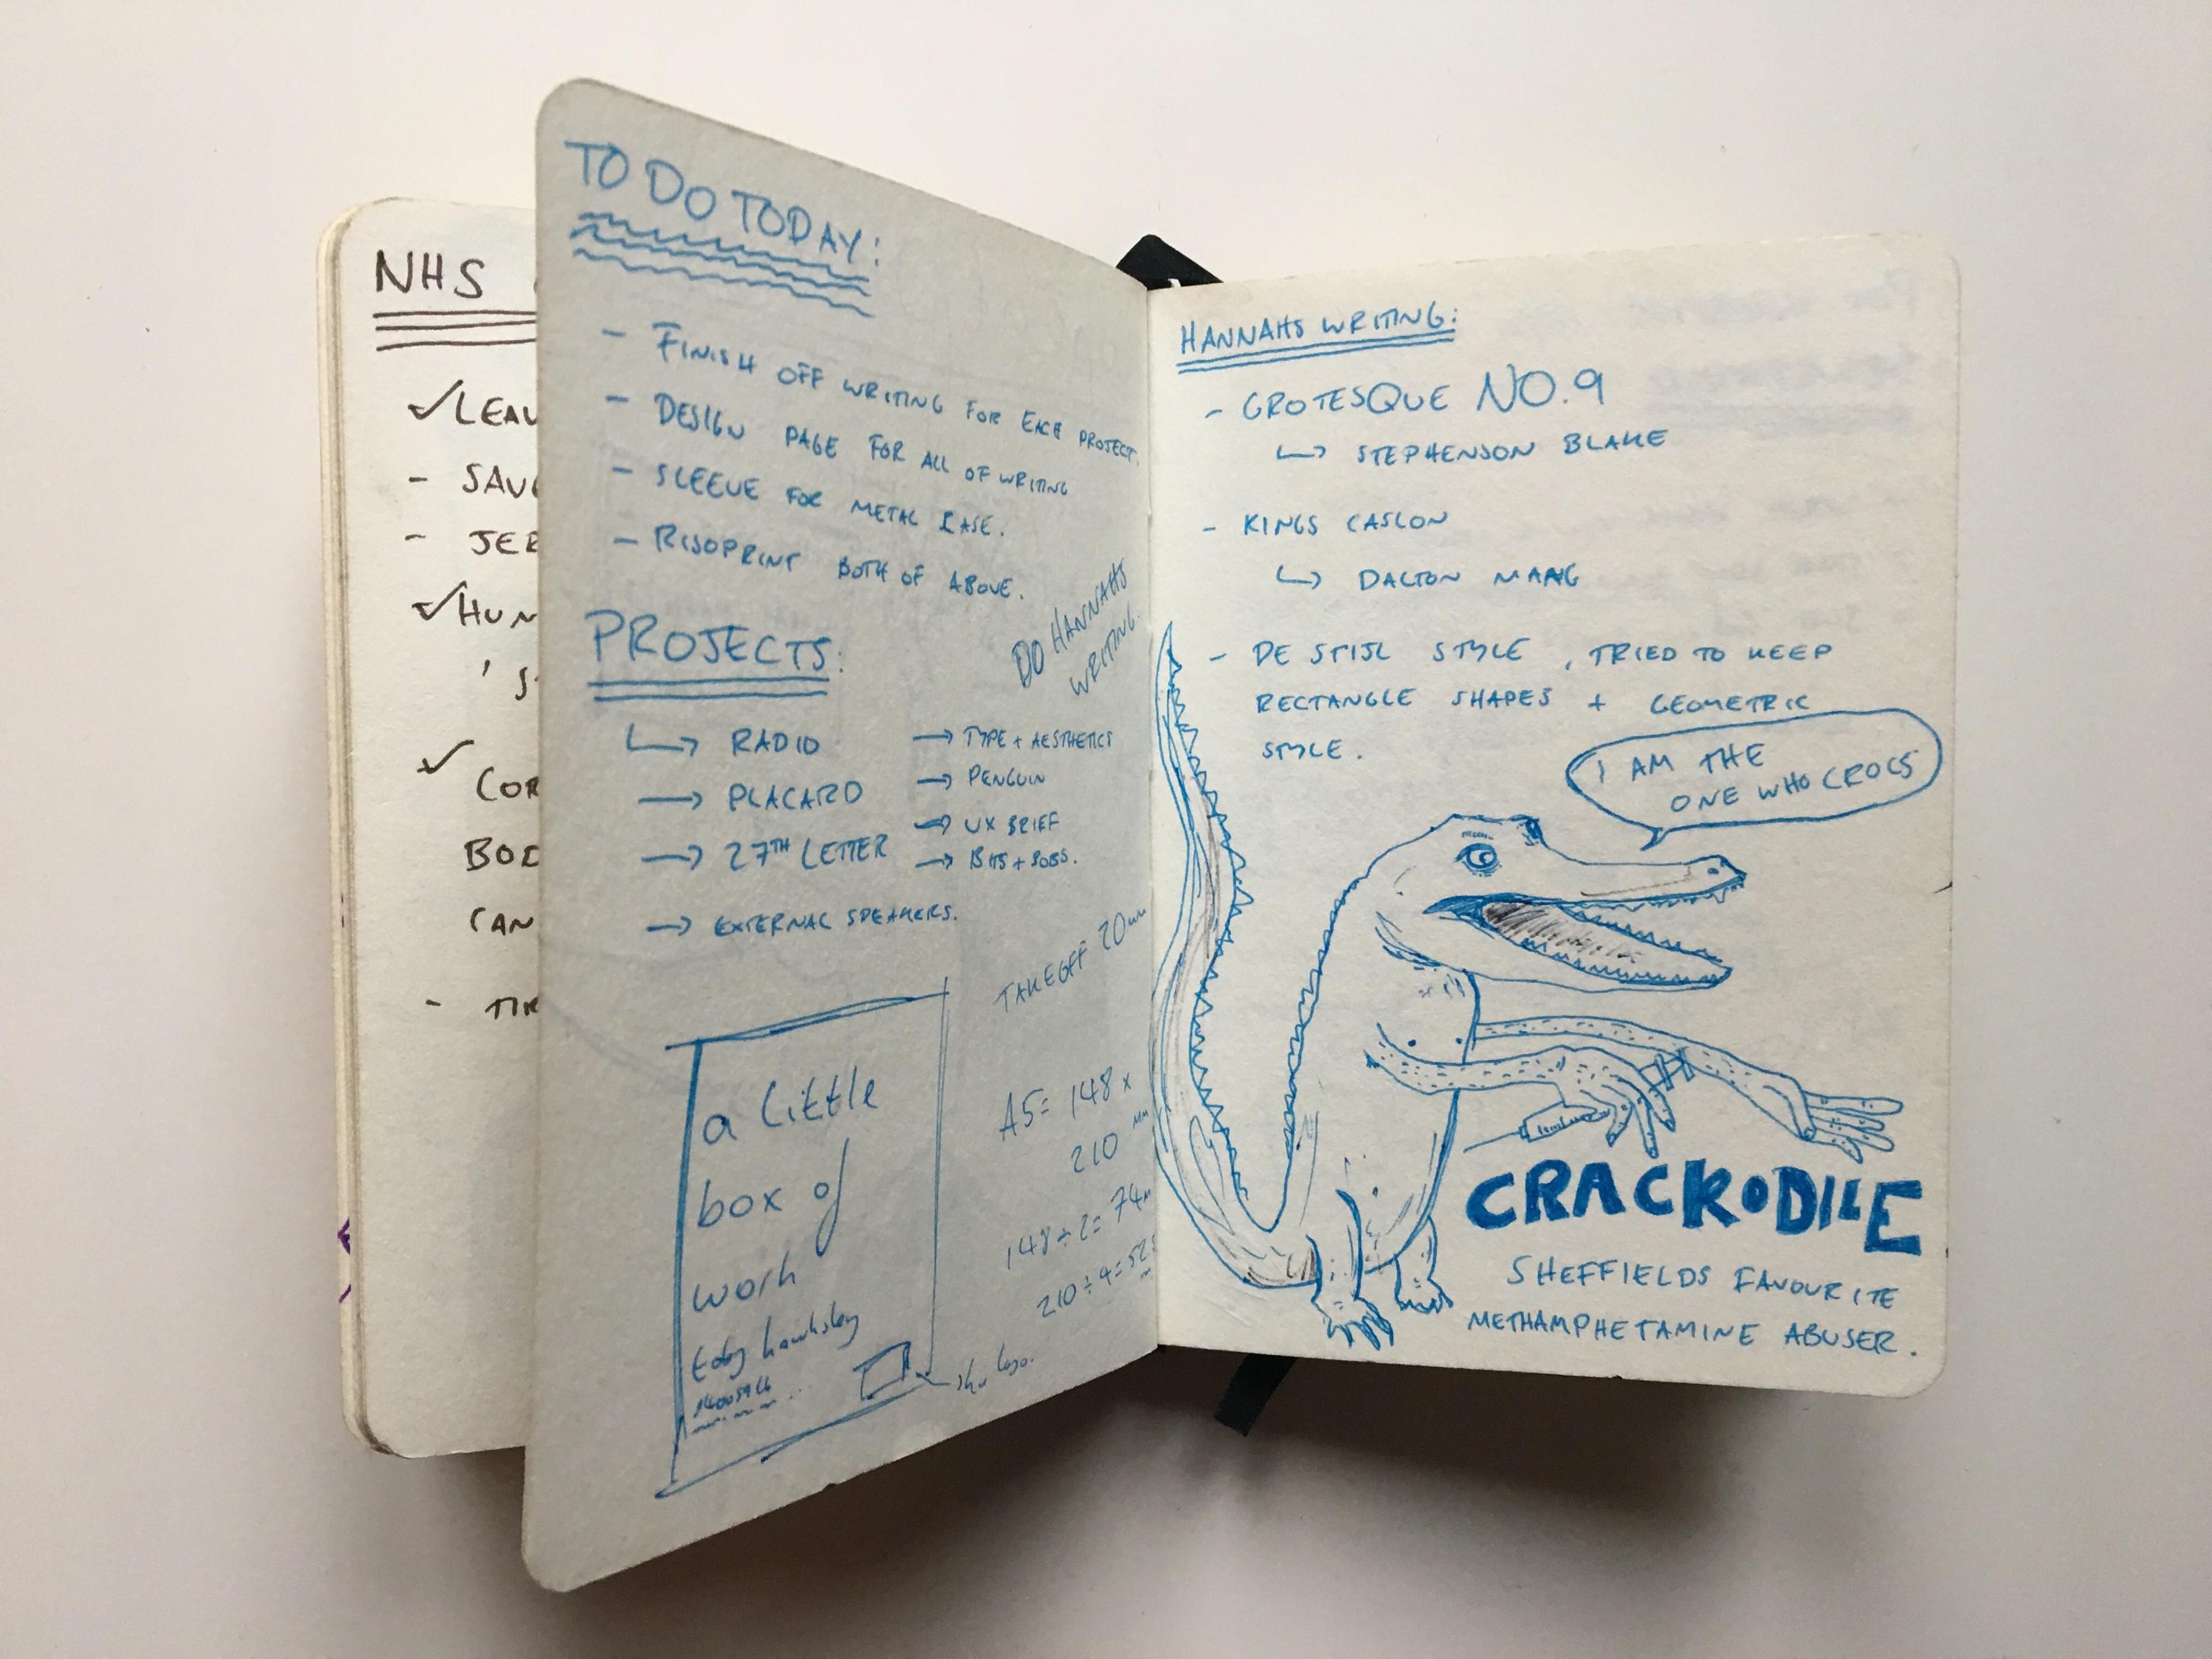 NHS
LEAU
- SAV
- JER
HUN
COR
BOD
CAN
- TIR
TO DO TODAY:
- FINISH OFF WRITING FOR EACH PROJECT.
- DESIGN PAGE FOR ALL OF WRITING
- SLEEVE FOR METAL CASE.
- RISOPRINT BOTH OF ABOVE.
DO HANNAHS
WRITING.
PROJECTS:
↳ RADIO
→ PLACARD
→ 27TH LETTER
→ EXTERNAL SPEAKERS.
→ TYPE + AESTHETICS
→ PENGUIN
→ UX BRIEF
→ BITS + BOBS.
TAKE OFF 20mm
a little
box of
work
shu logo.
A5= 148 x
210 mm
148 ÷ 2 = 74m
210 ÷ 4 = 52.5
HANNAHS WRITING:
- GROTESQUE NO.9
↳ STEPHENSON BLAKE
- KINGS CASLON
↳ DALTON MAAG
- DE STIJL STYLE, TRIED TO KEEP
RECTANGLE SHAPES + GEOMETRIC
STYLE.
I AM THE
ONE WHO CROCS
CRACKODILE
SHEFFIELDS FAVOURITE
METHAMPHETAMINE ABUSER.